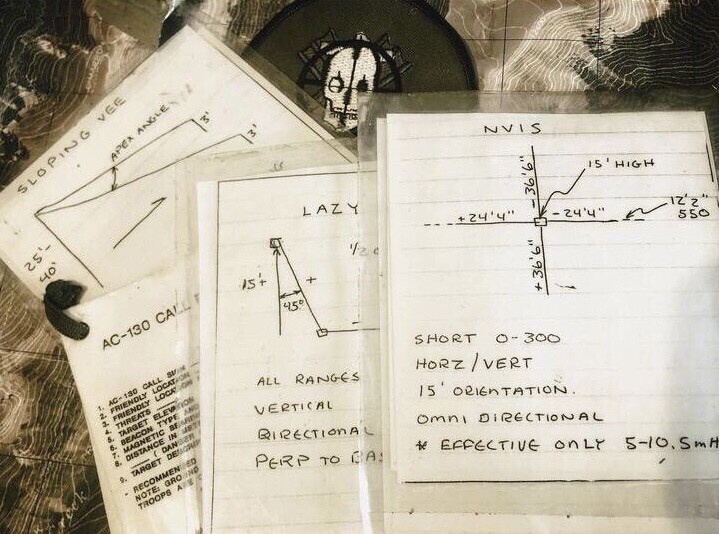 SLOPING VEE
APEX ANGLE
3'
3'
25'-
40'
AC-130 CALL
1. AC-130 CALL
2. FRIENDLY LOCATION
3. FRIENDLY LOCAT
4. THREATS
5. TARGET ELEVATION
6. BEACON TYPE AND
7. MAGNETIC BEARING
8. DISTANCE IN
( DANGER
9. TARGET
- RECOMMENDED
NOTE: GROUND
TROOPS ARE
LAZY
1/2
15'+
45°
+
ALL RANGES
VERTICAL
BIRECTIONAL
PERP TO BAS
NVIS
-36'6"
15' HIGH
+24'4"
-24'4"
12'2"
550
+36'6"
SHORT 0-300
HORZ/VERT
15' ORIENTATION.
OMNI DIRECTIONAL
* EFFECTIVE ONLY 5-10.5 mH